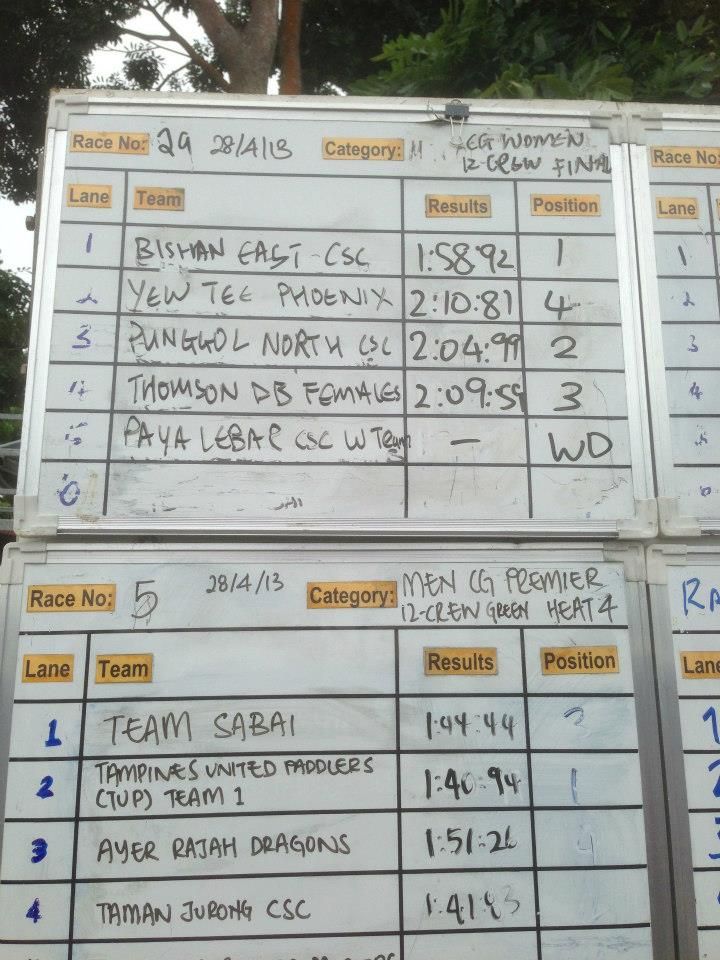 Race No: 29 28/4/13 Category: CG WOMEN
12-CREW FINAL
Lane Team Results Position
1 BISHAN EAST CSC 1:58:92 1
2 YEW TEE PHOENIX 2:10:81 4
3 PUNGGOL NORTH CSC 2:04:99 2
4 THOMSON DB FEMALES 2:09:59 3
5 PAYA LEBAR CSC W Team - WD
6
Race No: 5 28/4/13 Category: MEN CG PREMIER
12-CREW GREEN HEAT 4
Lane Team Results Position
1 TEAM SABAI 1:44:44
2 TAMPINES UNITED PADDLERS
(TUP) TEAM 1 1:40:94 1
3 AYER RAJAH DRAGONS 1:51:26 4
4 TAMAN JURONG CSC 1:41:83
Race No:
Lane
1
2
3
4
5
6
Lane
1